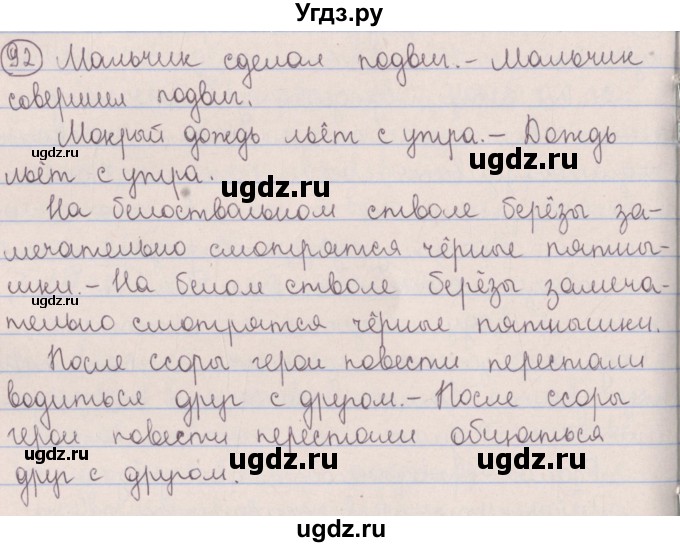 Угдз.ру
92 Мальчик сделал подвиг. – Мальчик
совершил подвиг.
Мокрый дождь льёт с утра. – Дождь
ugdz.ru ugdz.ru
льёт с утра.
ugdz.ru
На белоствольном стволе берёзы за-
мечательно смотрятся чёрные пятны-
ugdz.ru ugdz.ru
шки. – На белом стволе берёзы замеча-
тельно смотрятся чёрные пятнышки.
После ссоры герои повести перестали
водиться друг с другом. – После ссоры
герои повести перестали общаться
ugdz.ru ugdz.ru
друг с другом.
ugdz.ru